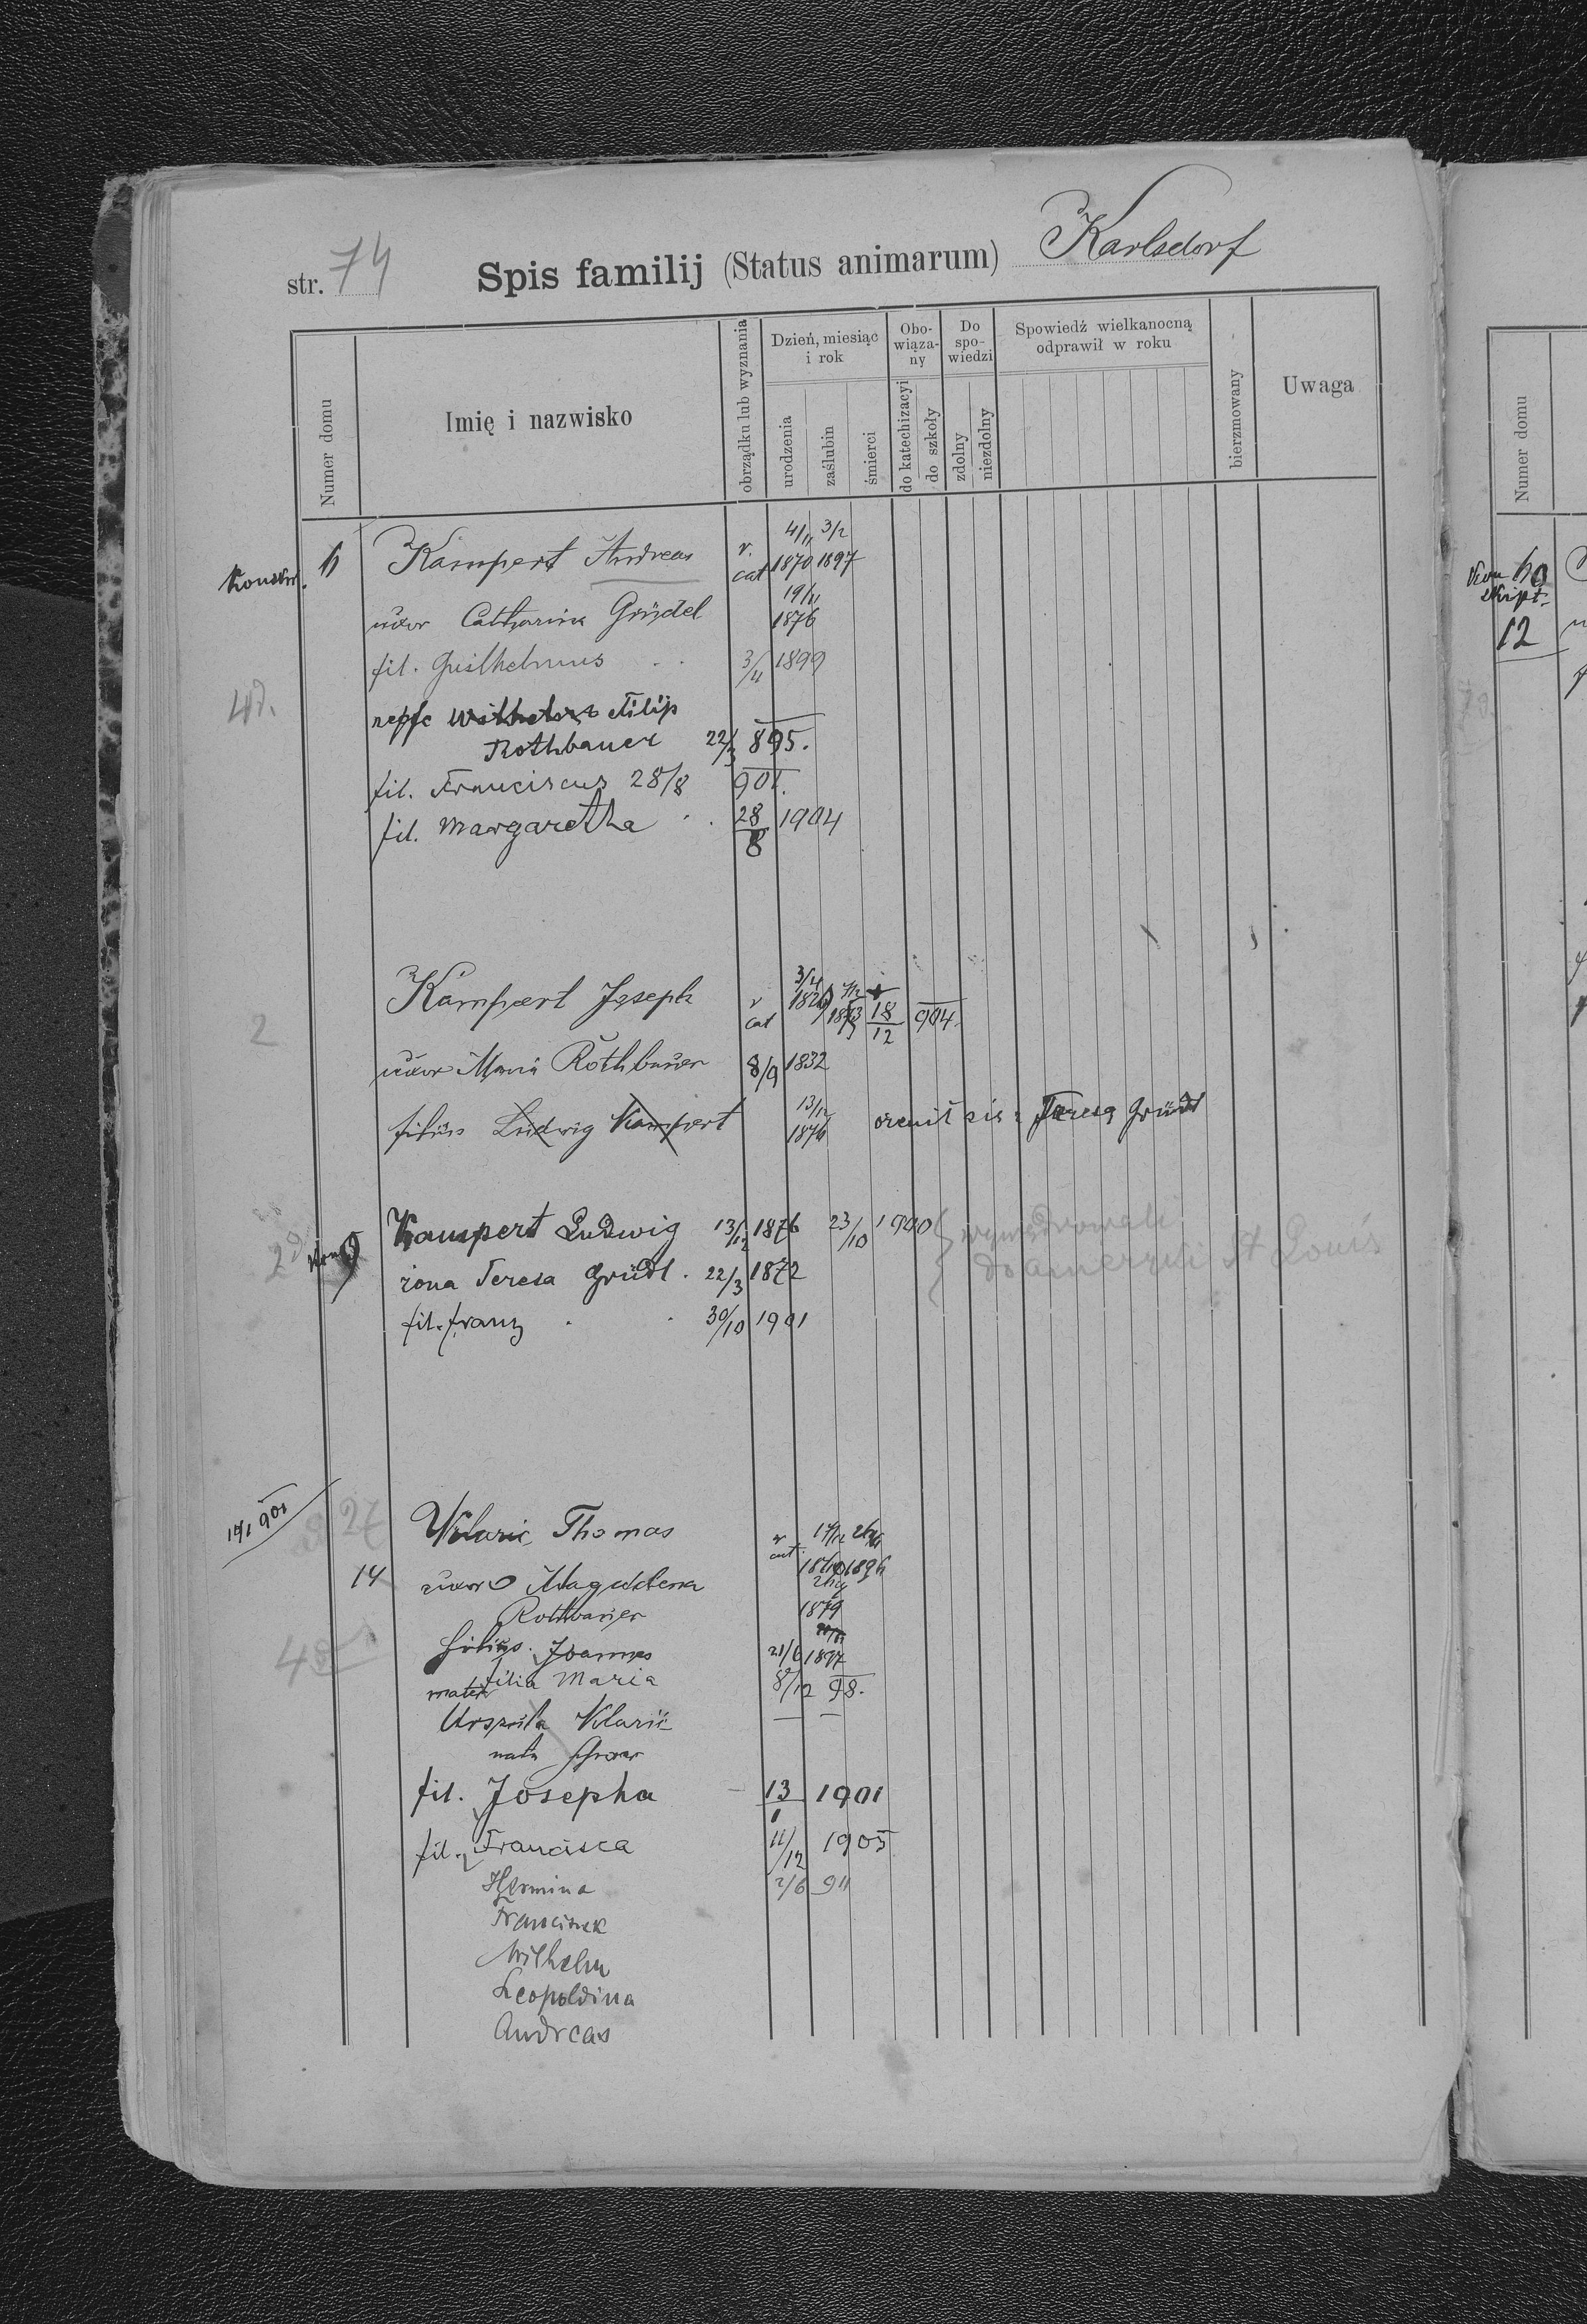 str. 74 Spis familij (Status animarum) Karlsdorf
Numer domu
Imię i nazwisko
obrządku lub wyznania
Dzień, miesiąc i rok
urodzenia
zaślubin
śmierci
Obo-wiąza-ny
do katechizacyi
do szkoły
Do spo-wiedzi
zdolny
niezdolny
Spowiedź wielkanocną odprawił w roku
bierzmowany
Uwaga
Kampert Andreas r. cat 4/11 1870 3/2 1897
uxor Catharina Gründel 19/11 1876
fil. Guilhelmus 3/4 1899
Filip
Rothbauer 22/3 895.
fil. Franciscus 28/8 901.
fil. Margaretha 28/8 1904
2 Kampert Joseph r cat 18/12 904.
uxor Maria Rothbauer 8/9 1832
filius Ludwig Kampert 13/12 1876 Teresa Gründl
Kampert Ludwig 13/12 1876 23/10 1900 wywędrowali
żona Teresa Gründl. 22/3 1872 do Ameryki St Louis
fil. Franz 30/10 1901
Thomas
14 uxor Magdalena 1879
Rothbauer
filius. Joannes 21/6 1897
filia Maria 8/12 98.
mater
fil. Josepha 13/1 1901
fil. Francisca 11/12 1905
Hermina 2/6 911
Franciszek
Wilhelm
Leopoldina
Andreas
Numer domu
12